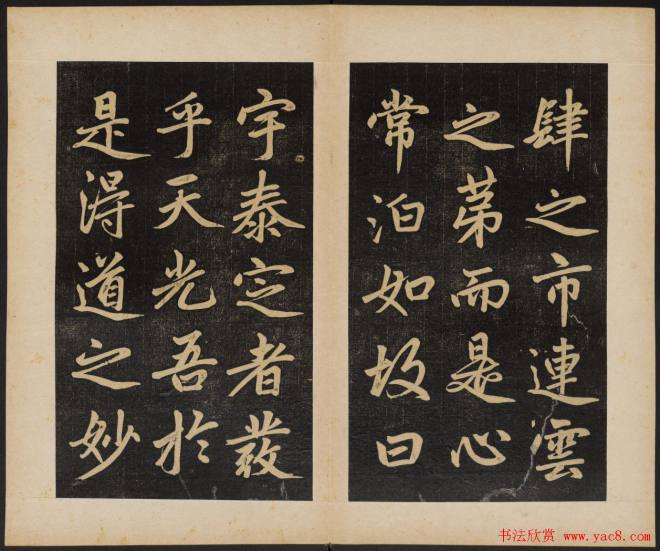 肆之市連雲
之苐而是心
常泊如故曰
宇泰定者發
乎天光吾於
是淂道之妙
书法欣赏 www.yac8.com